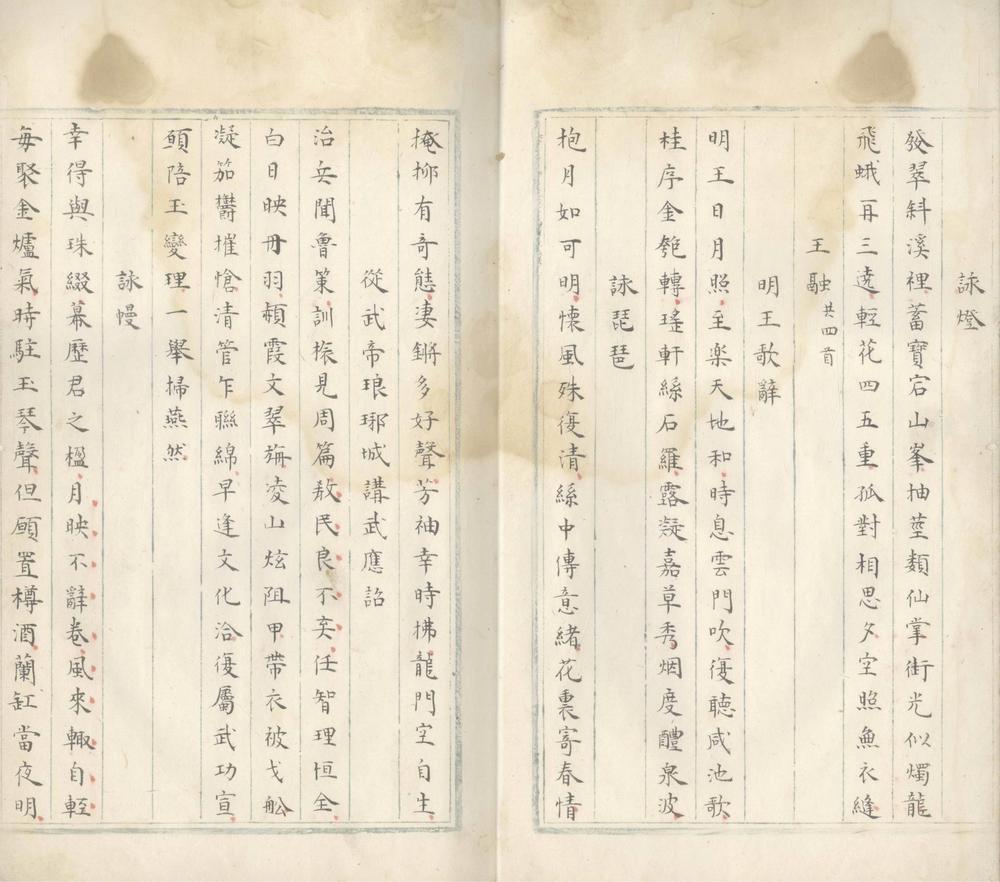 詠燈
發翠斜溪裡蓄寶宕山峯抽莖類仙掌銜光似燭龍
飛蛾再三遶輕花四五重孤對相思夕空照魚衣縫
王融 共四首
明王歌辭
明王日月照至楽天地和時息雲門吹復聽咸池歌
桂序金匏轉瑤軒絲石羅露凝嘉草秀烟度醴泉波
詠琵琶
抱月如可明懷風殊復清絲中傳意緒花裏寄春情
掩抑有奇態凄鏘多好聲芳袖幸時拂龍門空自生
從武帝琅琊城講武應詔
治兵聞魯策訓振見周篇敎民良不弃任智理恒全
白日映丹羽頳霞文翠旃凌山炫阻甲帶衣被戈舩
凝笳欝摧愴清管乍聯綿早逢文化洽復屬武功宣
願陪玉變理一舉掃燕然
詠幔
幸得與珠綴幕歷君之楹月映不辭卷風來輙自輕
每聚金爐氣時駐玉琴聲但願置樽酒蘭缸當夜明